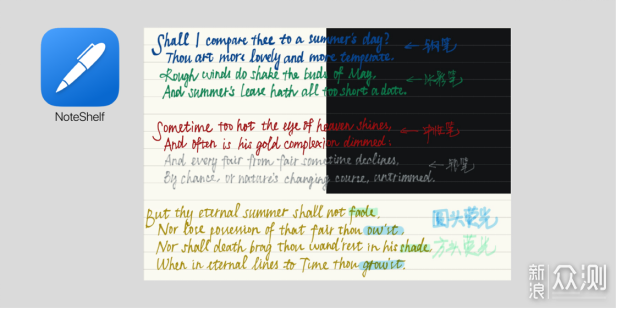 Shall I compare thee to a summer's day? ← 钢笔
Thou art more lovely and more temperate.
Rough winds do shake the buds of May, ← 水彩笔
And summer's lease hath all too short a date.
Sometime too hot the eye of heaven shines, ← 中性笔
And often is his gold complexion dimmed:
And every fair from fair sometime declines, ← 铅笔
By chance, or nature's changing course, untrimmed.
But thy eternal summer shall not fade, 圆头荧光
Nor lose possession of that fair thou ow'st.
Nor shall death brag thou wand'rest in his shade 方头荧光
When in eternal lines to Time thou grow'st.
NoteShelf
新浪众测